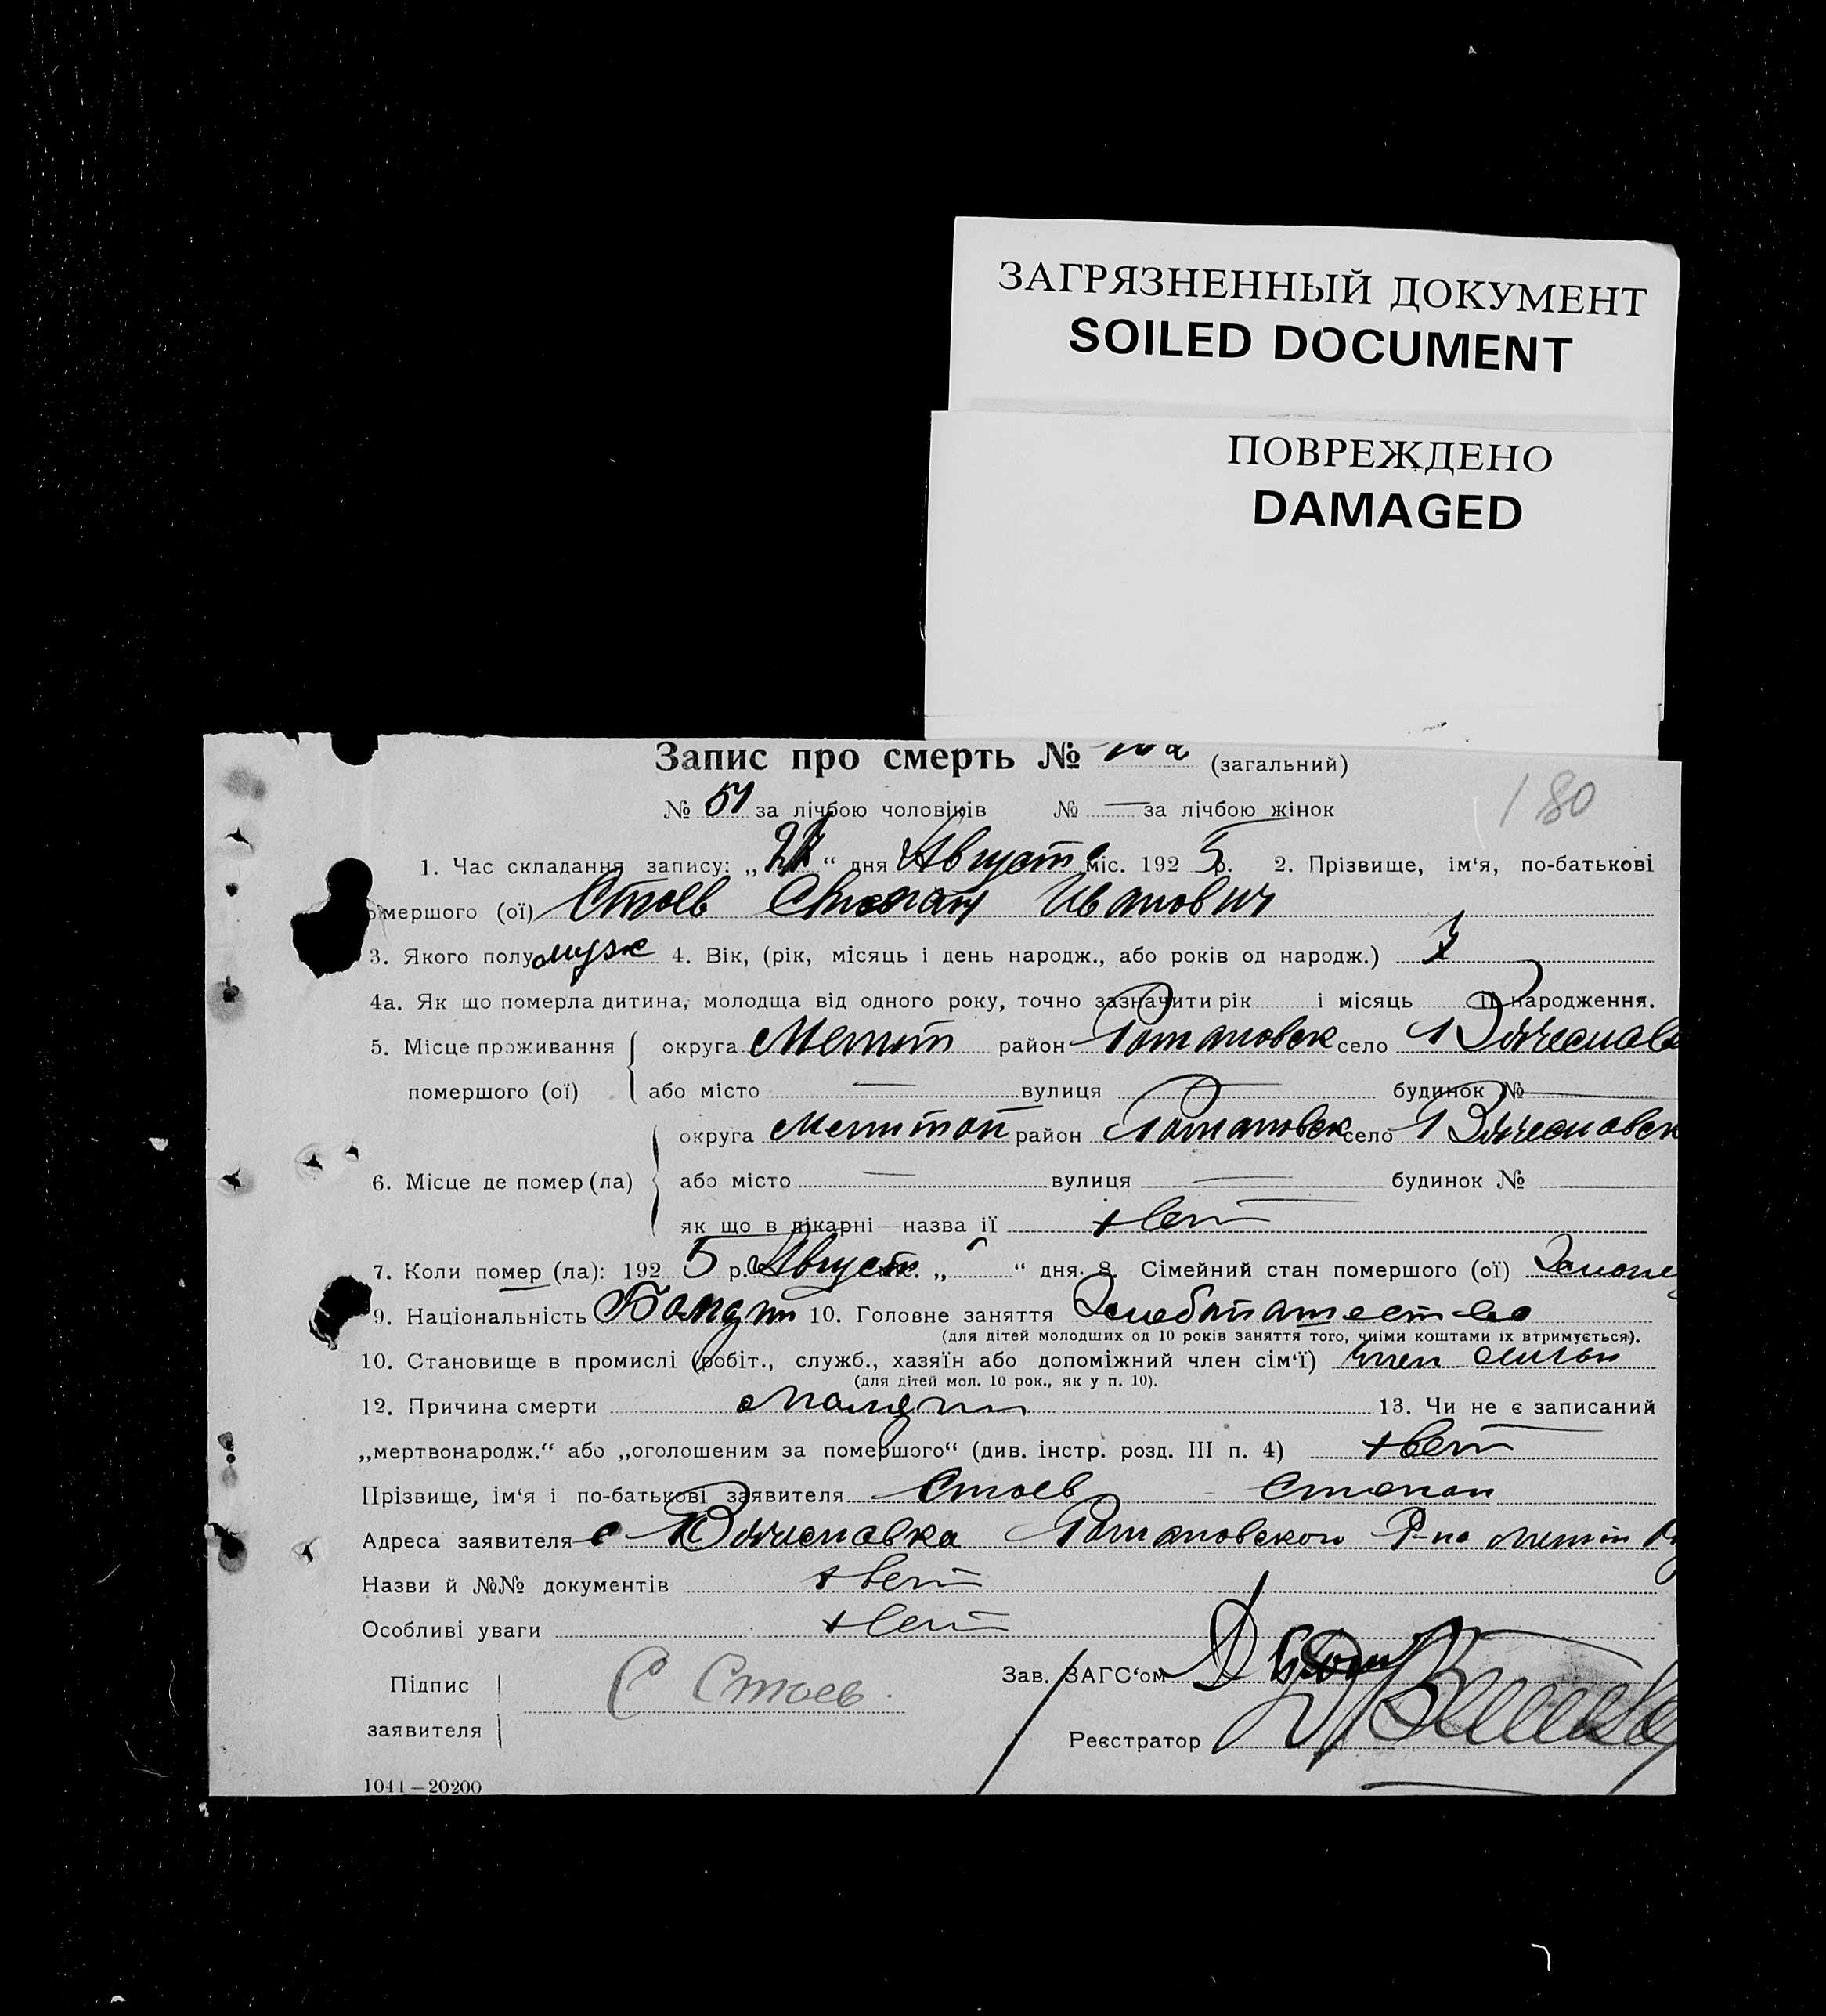 ЗАГРЯЗНЕННЫЙ ДОКУМЕНТ
SOILED DOCUMENT
ПОВРЕЖДЕНО
DAMAGED
Запис про смерть № (загальний)
180
№ 51 за лічбою чоловіків № — за лічбою жінок
1. Час складання запису: „ “ дня Августа міс. 1925 р. 2. Прізвище, ім‘я, по-батькові
омершого (ої) Стоев Иванович
3. Якого полу муж 4. Вік, (рік, місяць і день народж., або років од народж.)
4а. Як що померла дитина, молодща від одного року, точно зазначити рік і місяць її народження.
5. Місце проживання округа Мелит район Ботановск село
помершого (ої) або місто — вулиця — будинок № —
округа Мелитоп район Ботановск село
6. Місце де помер (ла) або місто — вулиця — будинок № —
як що в лікарні—назва її нет
7. Коли помер (ла): 1925 р. Август міс. „ “ дня. 8. Сімейний стан помершого (ої)
9. Національність 10. Головне заняття
(для дітей молодших од 10 років заняття того, чиїми коштами їх втримується).
10. Становище в промислі (робіт., служб., хазяїн або допоміжний член сім‘ї) член семьи
(для дітей мол. 10 рок., як у п. 10).
12. Причина смерти 13. Чи не є записаний
„мертвонародж.“ або „оголошеним за помершого“ (див. інстр. розд. III п. 4) нет
Прізвище, ім‘я і по-батькові заявителя Стоев Степан
Адреса заявителя с Вячеславка Ботановского Р-на Мелит
Назви й №№ документів нет
Особливі уваги нет
Підпис
заявителя С Стоев.
Зав. ЗАГС‘ом
Реєстратор
1041—20200